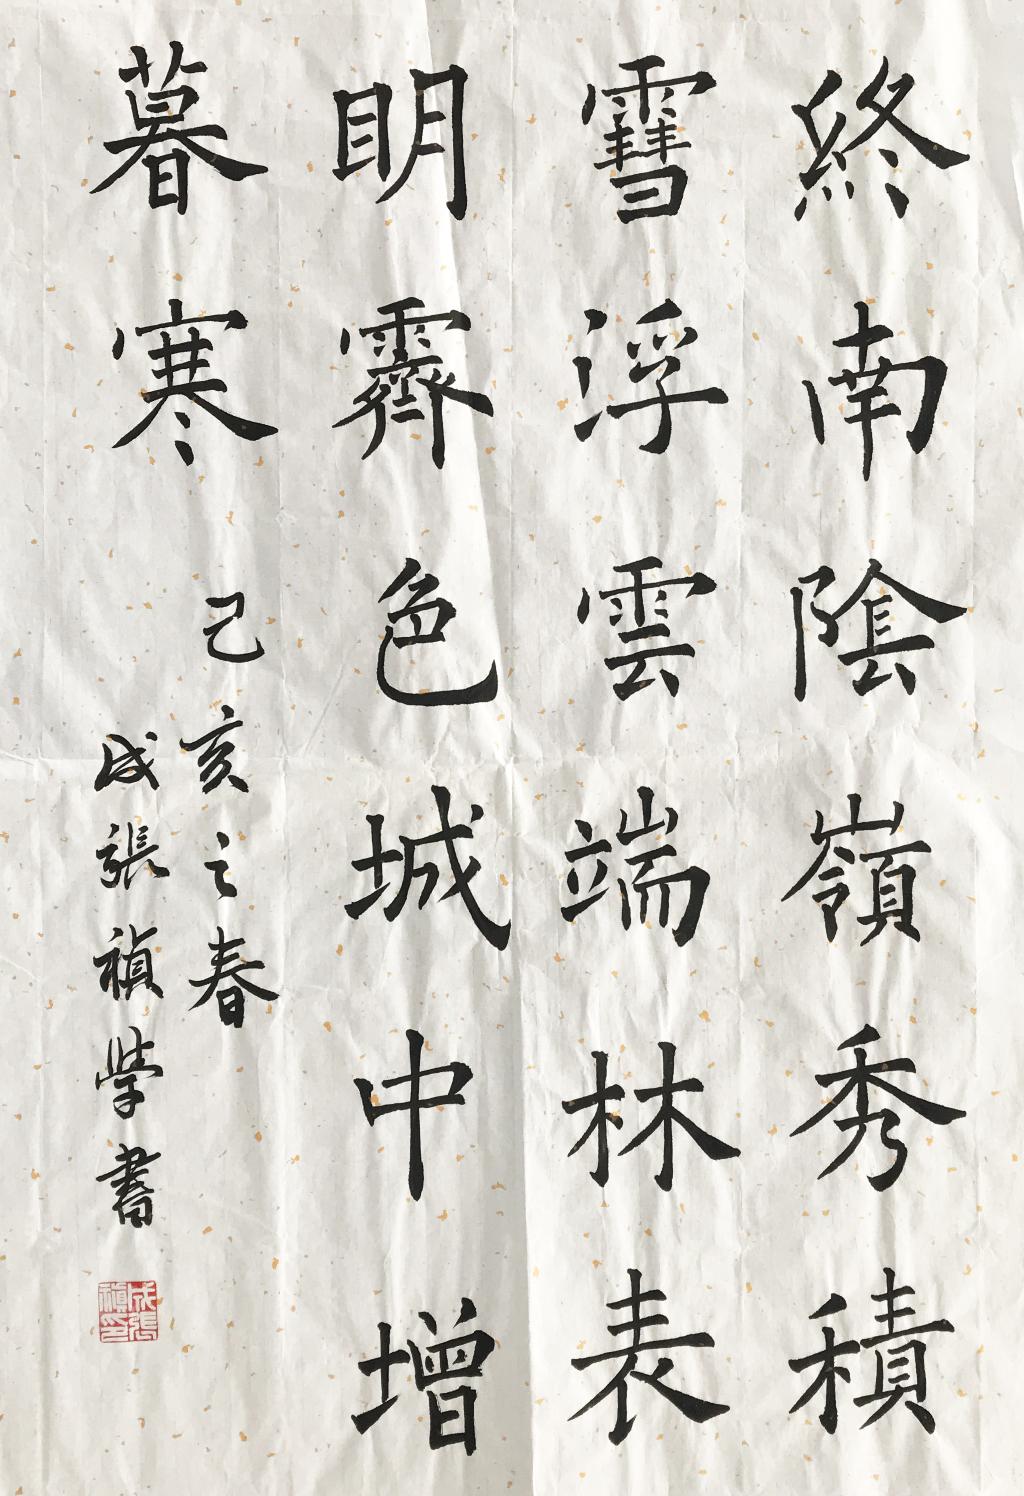 終南陰嶺秀積
雪浮雲端林表
明霽色城中增
暮寒
己亥之春
成張禎學書
成張禎印